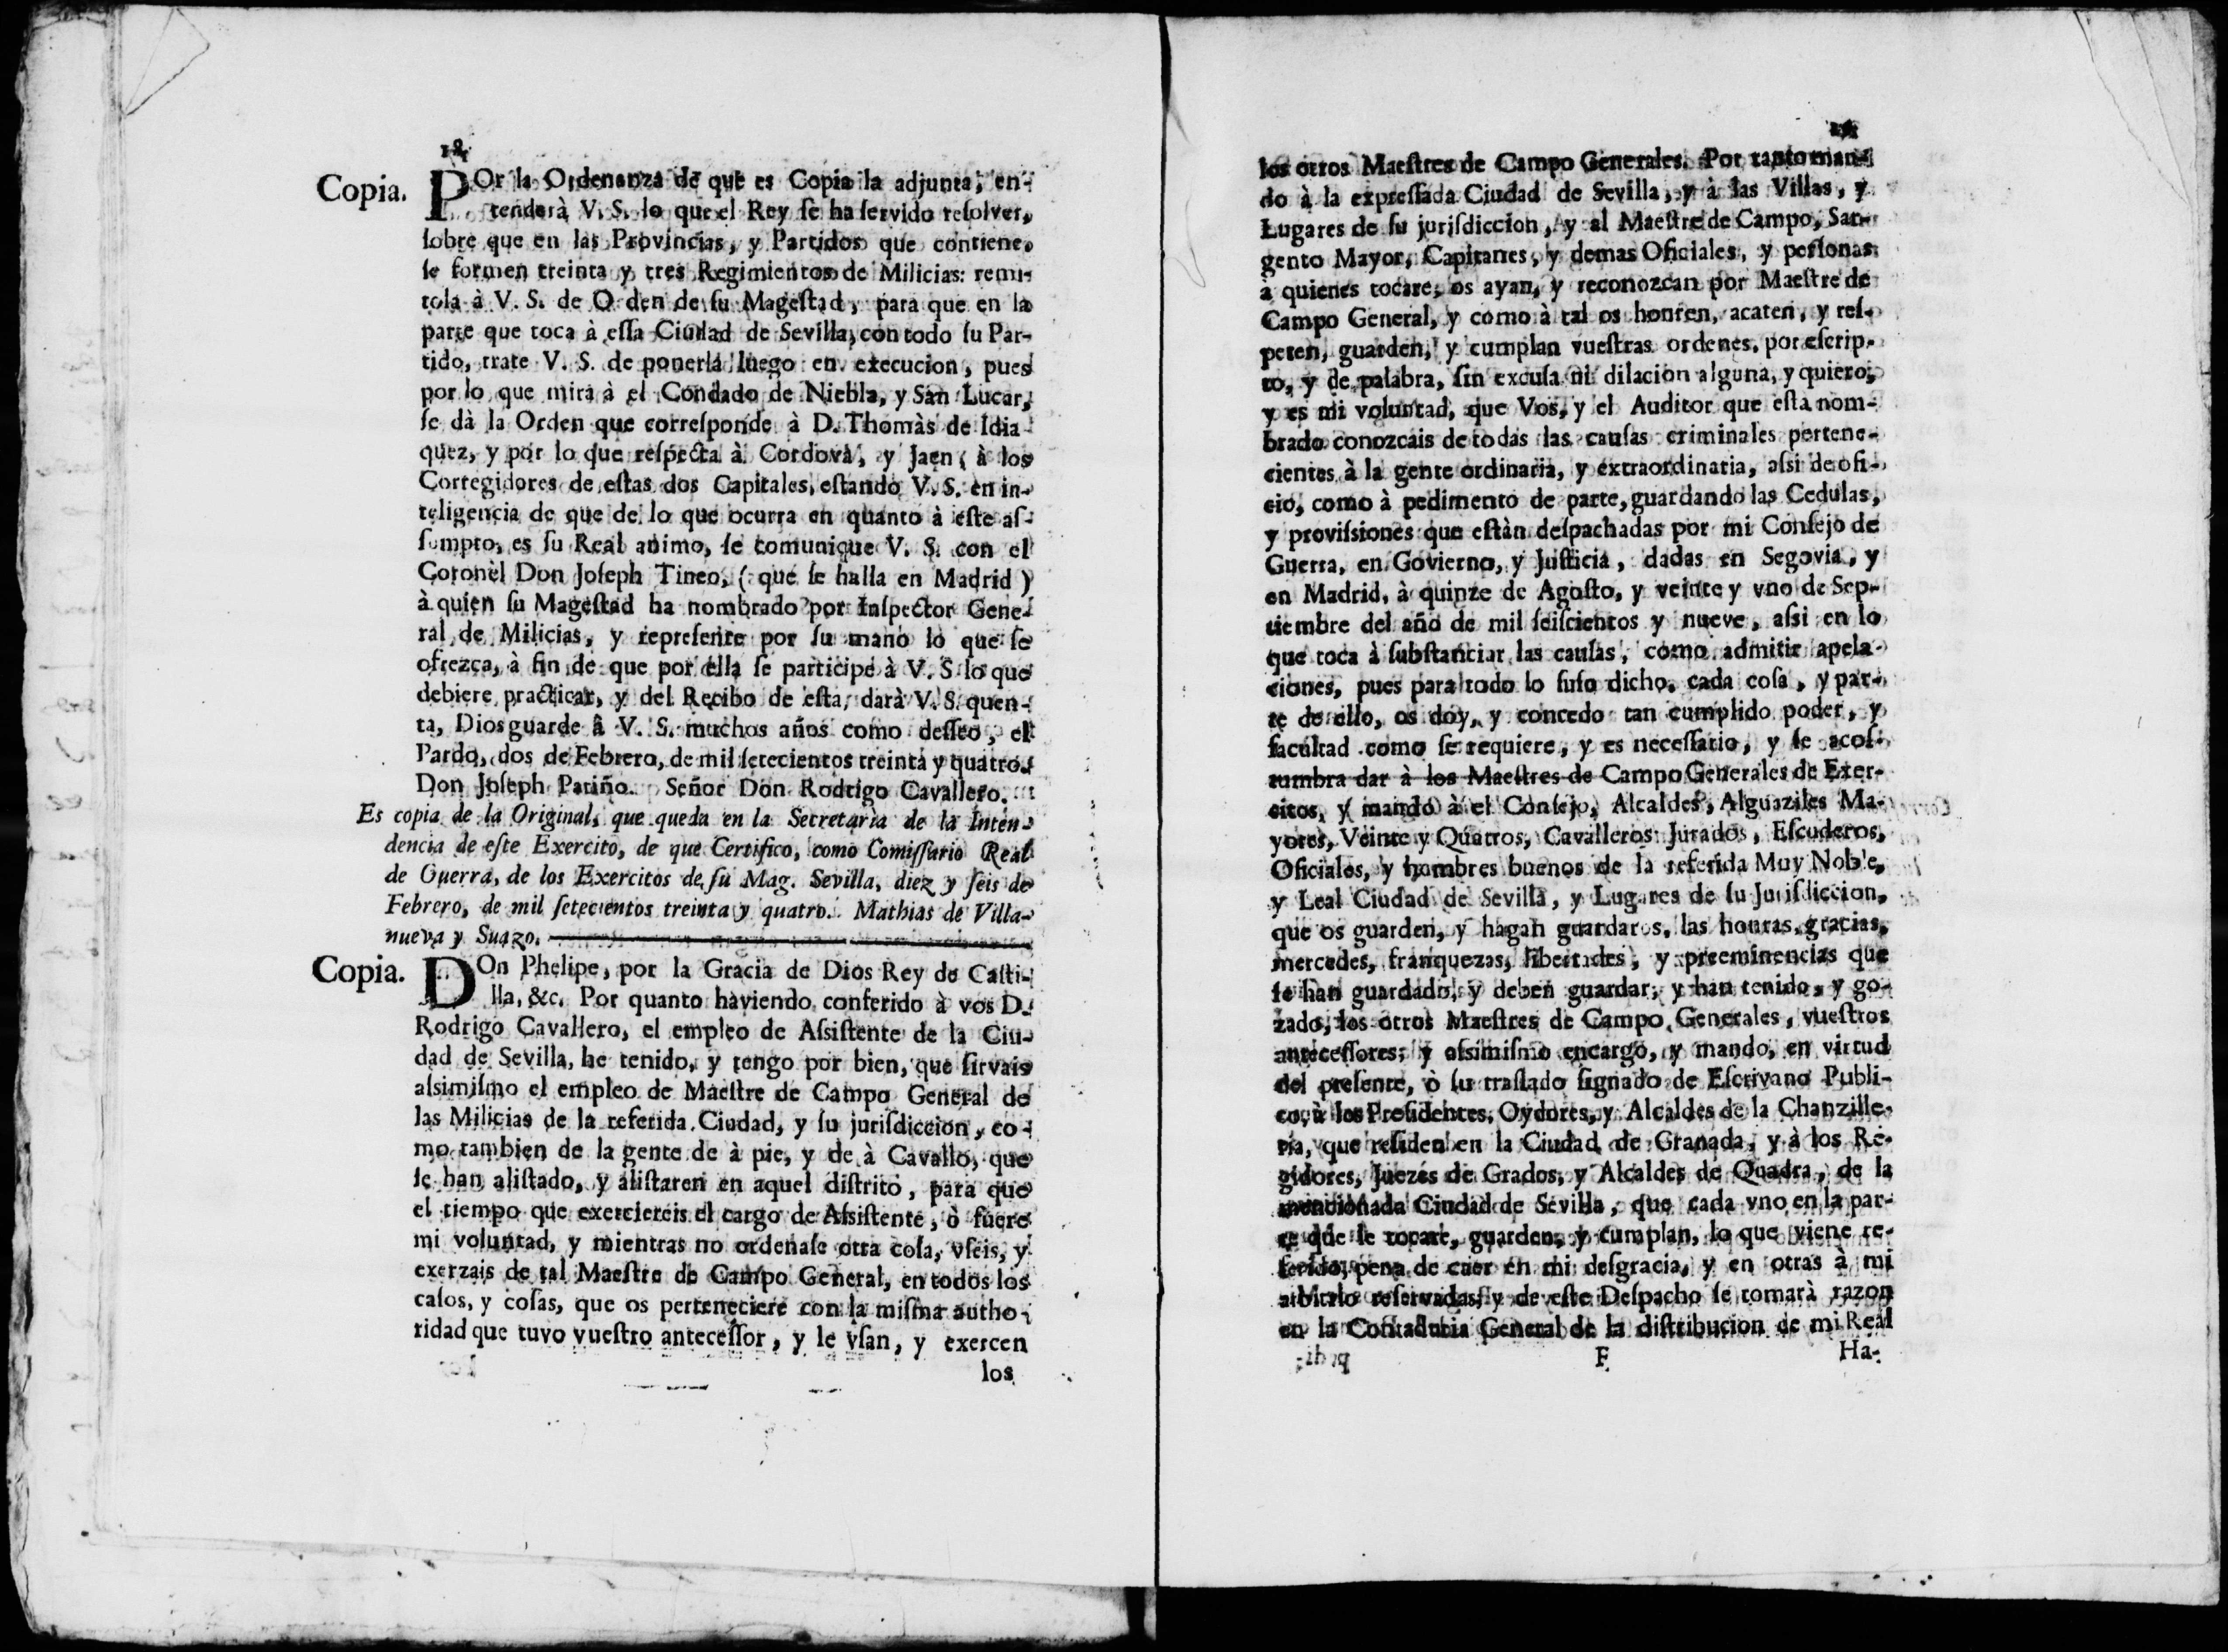 18
Copia. POr la Ordenanza de que es Copia la adjunta, en-
tenderà V. S. lo que el Rey ſe ha ſervido reſolver,
ſobre que en las Provincias, y Partidos que contiene,
ſe formen treinta y tres Regimientos de Milicias: remi-
tola à V. S. de Orden de ſu Mageſtad, para que en la
parte que toca à eſſa Ciudad de Sevilla, con todo ſu Par-
tido, trate V. S. de ponerla luego en execucion, pues
por lo que mira à el Condado de Niebla, y San Lucar,
ſe dà la Orden que correſponde à D. Thomàs de Idia-
quez, y por lo que reſpecta à Cordova, y Jaen, à los
Corregidores de eſtas dos Capitales, eſtando V. S. en in-
teligencia de que de lo que ocurra en quanto à eſte aſ-
ſumpto, es ſu Real animo, ſe comunique V. S. con el
Coronèl Don Joſeph Tineo, (que ſe halla en Madrid)
à quien ſu Mageſtad ha nombrado por Inſpector Gene-
ral de Milicias, y repreſente por ſu mano lo que ſe
ofrezca, à fin de que por ella ſe participe à V. S. lo que
debiere practicar, y del Recibo de eſta, darà V. S. quen-
ta, Dios guarde à V. S. muchos años como deſſeo, el
Pardo, dos de Febrero, de mil ſetecientos treinta y quatro.
Don Joſeph Patiño. Señor Don Rodrigo Cavallero.
Es copia de la Original, que queda en la Secretaria de la Inten-
dencia de eſte Exercito, de que Certifico, como Comiſſario Real
de Guerra, de los Exercitos de ſu Mag. Sevilla, diez y ſeis de
Febrero, de mil ſetecientos treinta y quatro. Mathias de Villa-
nueva y Suazo.
Copia. DOn Phelipe, por la Gracia de Dios Rey de Caſti-
lla, &c. Por quanto haviendo conferido à vos D.
Rodrigo Cavallero, el empleo de Aſsiſtente de la Ciu-
dad de Sevilla, he tenido, y tengo por bien, que ſirvais
aſsimiſmo el empleo de Maeſtre de Campo General de
las Milicias de la referida Ciudad, y ſu juriſdiccion, co-
mo tambien de la gente de à pie, y de à Cavallo, que
ſe han aliſtado, y aliſtaren en aquel diſtrito, para que
el tiempo que exerciereis el cargo de Aſsiſtente, ò fuere
mi voluntad, y mientras no ordenaſe otra coſa, vſeis, y
exerzais de tal Maeſtre de Campo General, en todos los
caſos, y coſas, que os perteneciere con la miſma autho-
ridad que tuvo vueſtro anteceſſor, y le vſan, y exercen
los
los otros Maeſtres de Campo Generales. Por tanto man-
do à la expreſſada Ciudad de Sevilla, y à las Villas, y
Lugares de ſu juriſdiccion, y al Maeſtre de Campo, Sar-
gento Mayor, Capitanes, y demas Oficiales, y perſonas
à quienes tocare, os ayan, y reconozcan por Maeſtre de
Campo General, y como à tal os honren, acaten, y reſ-
peten, guarden, y cumplan vueſtras ordenes, por eſcrip-
to, y de palabra, ſin excuſa ni dilacion alguna, y quiero,
y es mi voluntad, que Vos, y el Auditor que eſta nom-
brado conozcais de todas las cauſas criminales pertene-
cientes à la gente ordinaria, y extraordinatia, aſsi de ofi-
cio, como à pedimento de parte, guardando las Cedulas,
y proviſsiones que eſtàn deſpachadas por mi Conſejo de
Guerra, en Govierno, y Juſticia, dadas en Segovia, y
en Madrid, à quinze de Agoſto, y veinte y vno de Sep-
tiembre del año de mil ſeiſcientos y nueve, aſsi en lo
que toca à ſubſtanciar las cauſas, como admitir apela-
ciones, pues para todo lo ſuſo dicho, cada coſa, y par-
te de ello, os doy, y concedo tan cumplido poder, y
facultad como ſe requiere, y es neceſſatio, y ſe acoſ-
tumbra dar à los Maeſtres de Campo Generales de Exer-
citos, y mando à el Conſejo, Alcaldes, Alguaziles Ma-
yores, Veinte y Quatros, Cavalleros Jurados, Eſcuderos,
Oficiales, y hombres buenos de la referida Muy Noble,
y Leal Ciudad de Sevilla, y Lugares de ſu Juriſdiccion,
que os guarden, y hagan guardaros, las honras, gracias,
mercedes, franquezas, libertades, y preeminencias que
ſe han guardado, y deben guardar, y han tenido, y go-
zado, los otros Maeſtres de Campo Generales, vueſtros
anteceſſores; y aſsimiſmo encargo, y mando, en virtud
del preſente, ò ſu traſlado ſignado de Eſcrivano Publi-
co, à los Preſidentes, Oydores, y Alcaldes de la Chanzille-
ria, que reſiden en la Ciudad de Granada, y à los Re-
gidores, Juezes de Grados, y Alcaldes de Quadra, de la
mencionada Ciudad de Sevilla, que cada vno en la par-
te que le tocare, guarden, y cumplan, lo que viene re-
ferido, pena de caer en mi deſgracia, y en otras à mi
arbitrio reſervadas, y de eſte Deſpacho ſe tomarà razon
en la Contaduria General de la diſtribucion de mi Real
F
Ha-